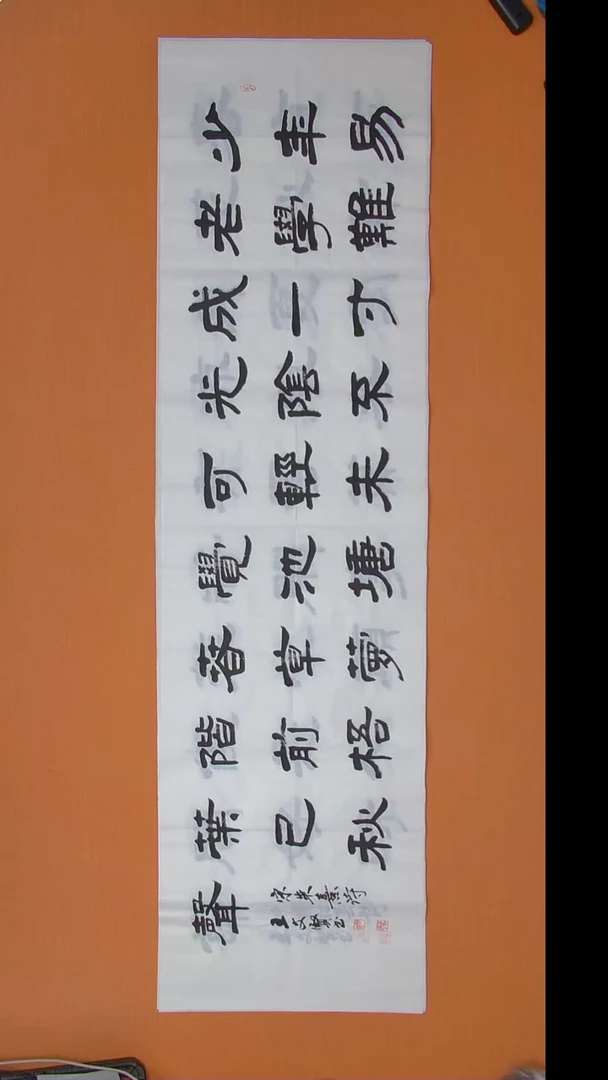 少年易
老學難
成一寸
光陰不
可輕未
覺池塘
春草夢
階前梧
葉已秋
聲
宋朱熹詩
王文